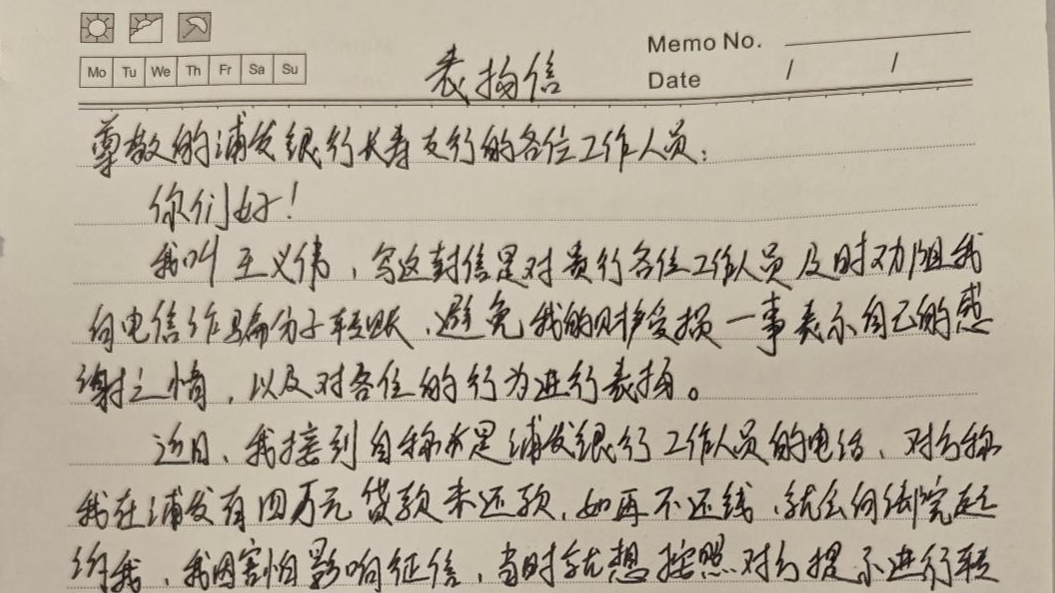 Memo No.
Mo Tu We Th Fr Sa Su
Date / /
表扬信
尊敬的浦发银行长寿支行的各位工作人员:
你们好!
我叫王义伟,写这封信是对贵行各位工作人员及时劝阻我
向电信诈骗分子转账,避免我的财产受损一事表示自己的感
谢之情,以及对各位的行为进行表扬。
近日,我接到自称是浦发银行工作人员的电话,对方称
我在浦发有四万元贷款未还款,如再不还钱,就会向法院起
诉我,我因害怕影响征信,当时就想按照对方提示进行转